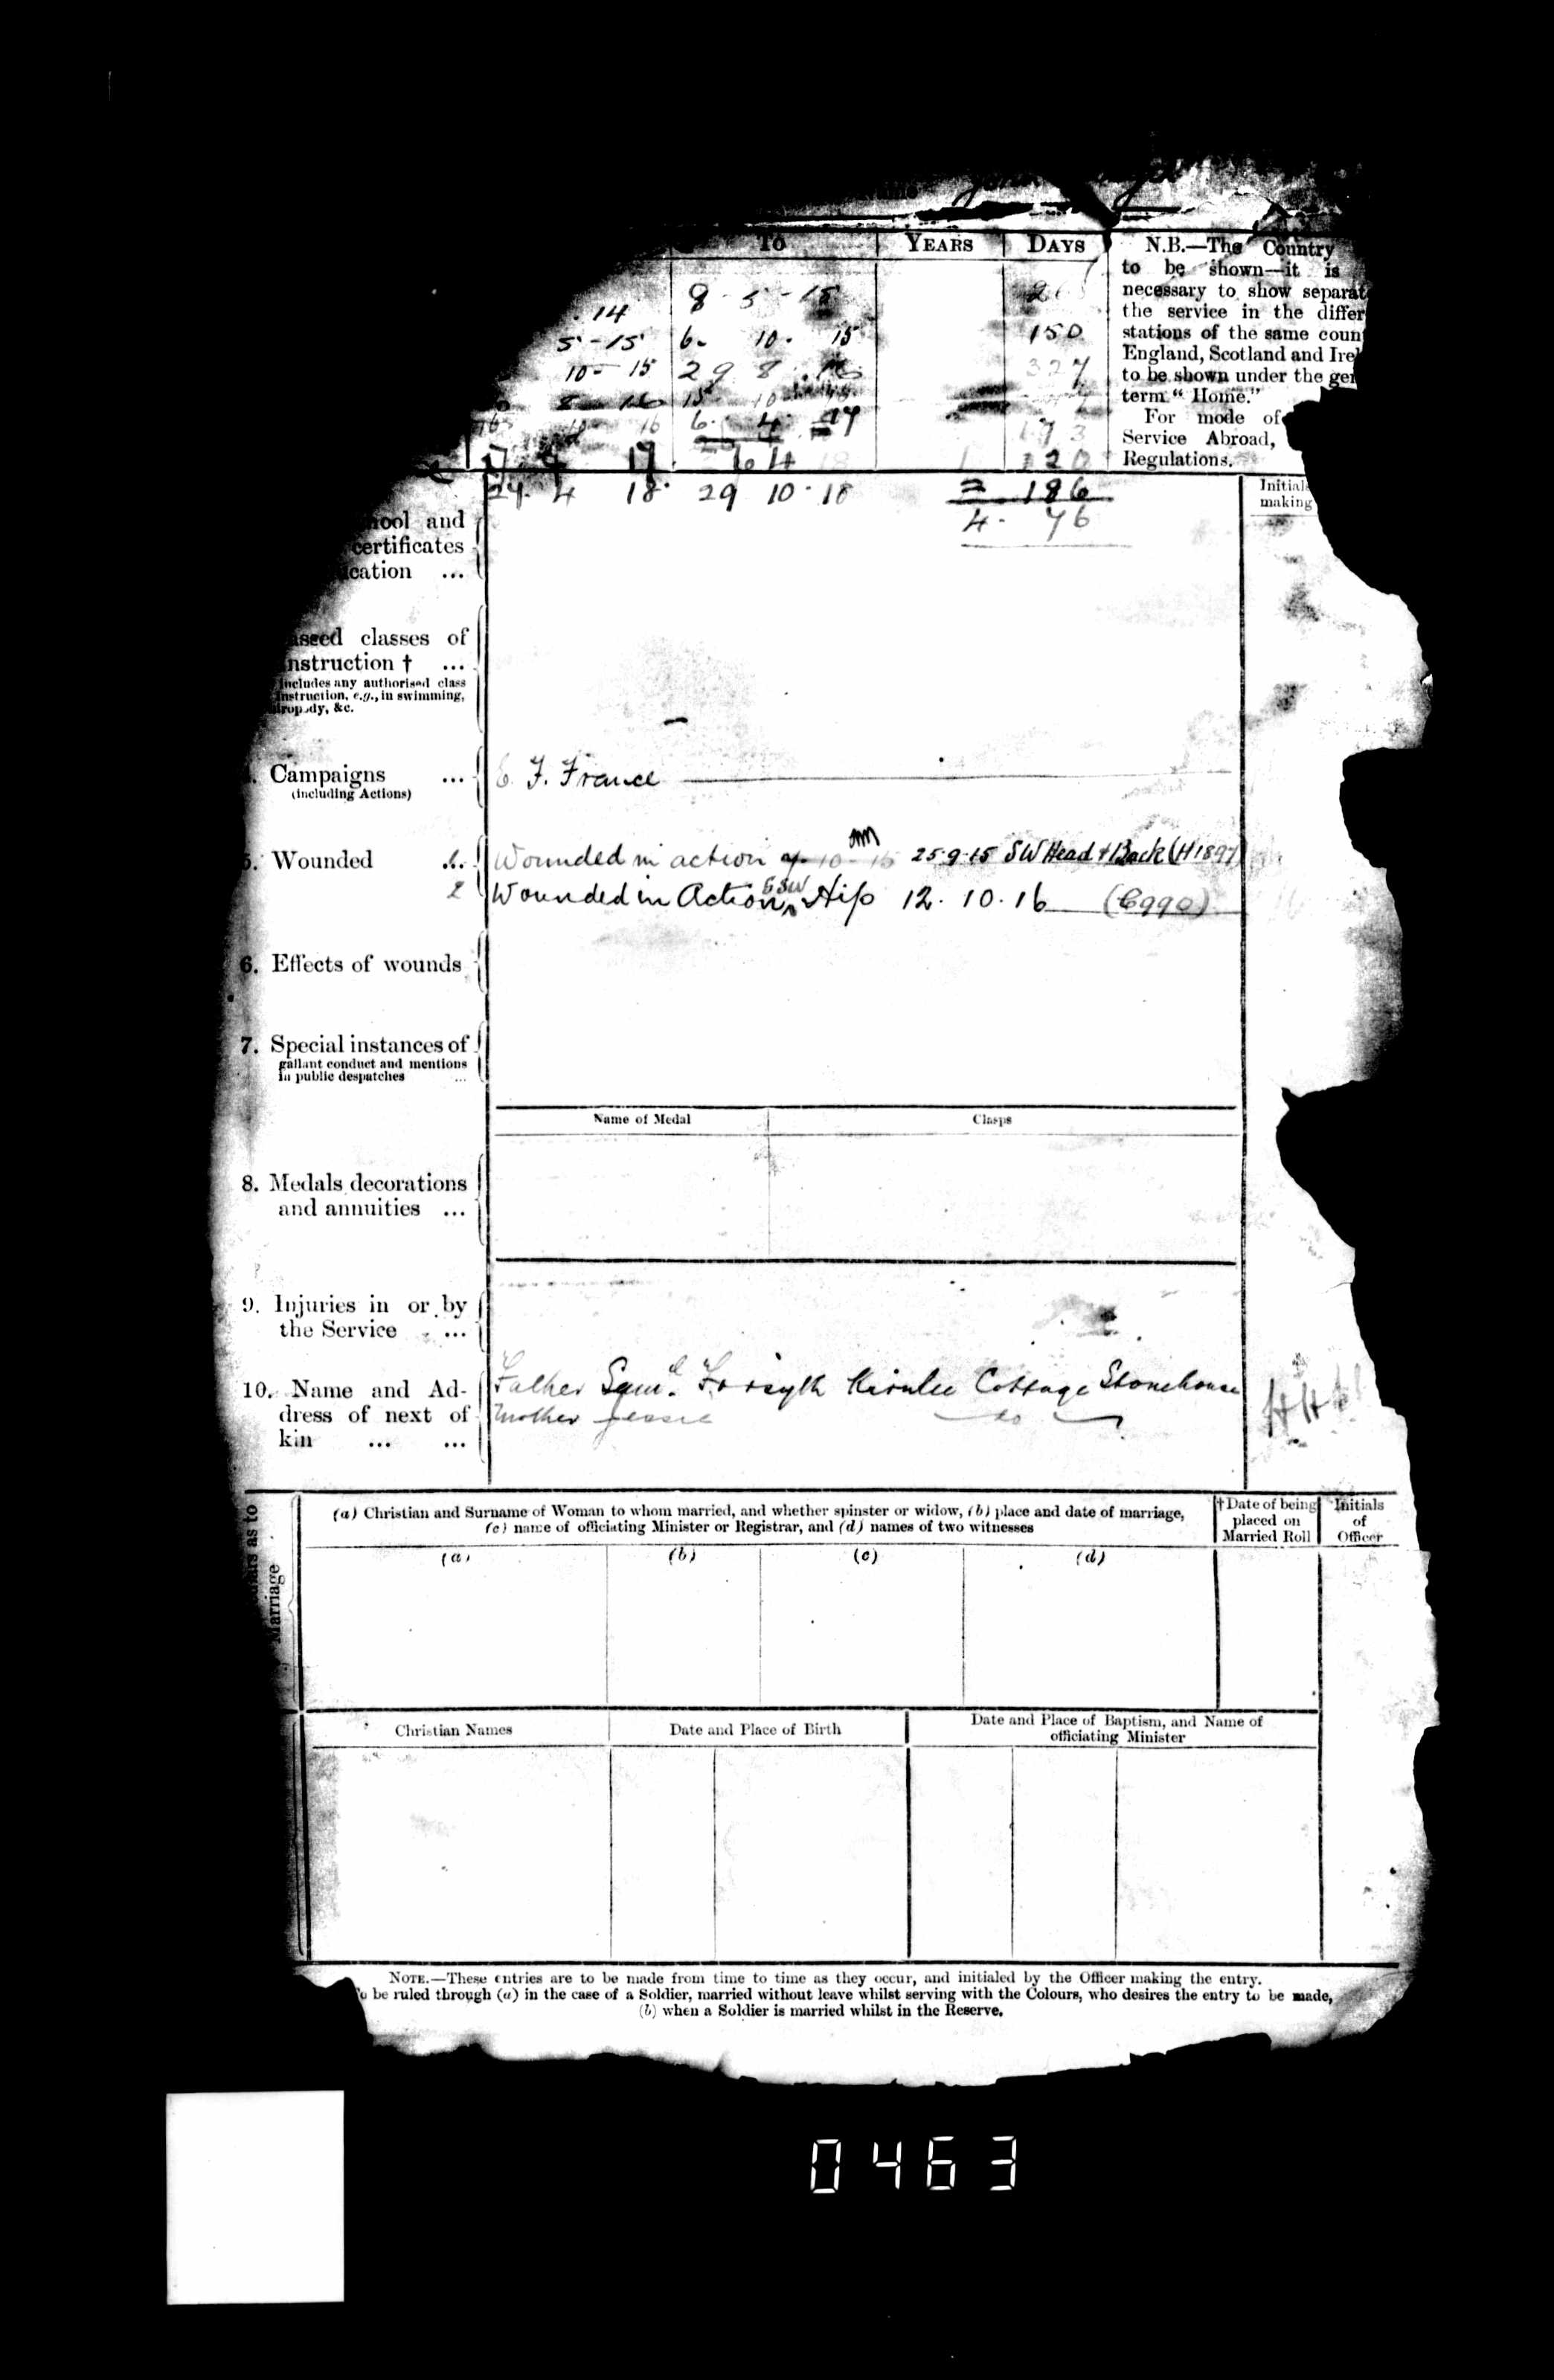 To YEARS DAYS
N.B.—The Country
to be shown—it is
necessary to show separat
the service in the differ
stations of the same coun
England, Scotland and Irel
to be shown under the gen
term "Home."
For mode of
Service Abroad,
Regulations.
14 8 - 5 - 15
5 - 15 6. 10. 15 150
10 - 15 29 8 327
6. 4. 17 173
24. 4 18. 29 10 - 18 186
4. 76
Initials
making
hool and
certificates
cation ...
assed classes of
nstruction † ...
includes any authorised class
instruction, e.g., in swimming,
&c.
Campaigns ... E. F. France
(including Actions)
5. Wounded 1. Wounded in action 25-9-15 SW Head & Back (H1897)
2 Wounded in Action GSW Hip 12. 10. 16
6. Effects of wounds
7. Special instances of
gallant conduct and mentions
in public despatches ...
Name of Medal Clasps
8. Medals decorations
and annuities ...
9. Injuries in or by
the Service ...
10. Name and Ad- Father Saml. Forsyth Cottage Stonehouse
dress of next of Mother Jessie do
kin ... ...
Marriage
(a) Christian and Surname of Woman to whom married, and whether spinster or widow, (b) place and date of marriage,
(c) name of officiating Minister or Registrar, and (d) names of two witnesses
† Date of being
placed on
Married Roll
Initials
of
Officer
(a) (b) (c) (d)
Christian Names Date and Place of Birth Date and Place of Baptism, and Name of
officiating Minister
NOTE.—These entries are to be made from time to time as they occur, and initialed by the Officer making the entry.
To be ruled through (a) in the case of a Soldier, married without leave whilst serving with the Colours, who desires the entry to be made,
(b) when a Soldier is married whilst in the Reserve.
0463